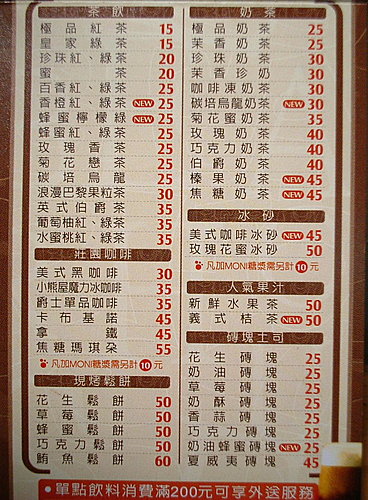 茶飲
極品紅茶 15
皇家綠茶 15
珍珠紅、綠茶 20
蜜茶 20
百香紅、綠茶 25
香橙紅、綠茶 NEW 25
蜂蜜檸檬綠 NEW 25
蜂蜜紅、綠茶 25
玫瑰香茶 25
菊花戀茶 25
碳培烏龍 25
浪漫巴黎果粒茶 30
英式伯爵茶 35
葡萄柚紅、綠茶 35
水蜜桃紅、綠茶 35
莊園咖啡
美式黑咖啡 30
小熊屋魔力冰咖啡 35
爵士單品咖啡 35
卡布基諾 45
拿鐵 45
焦糖瑪琪朵 55
凡加MONI糖漿需另計10元
現烤鬆餅
花生鬆餅 50
草莓鬆餅 50
蜂蜜鬆餅 50
巧克力鬆餅 50
鮪魚鬆餅 60
奶茶
極品奶茶 25
茉香奶茶 25
珍珠奶茶 30
茉香珍奶 30
咖啡凍奶茶 30
碳培烏龍奶茶 NEW 30
菊花蜜奶茶 35
玫瑰奶茶 40
巧克力奶茶 40
伯爵奶茶 40
榛果奶茶 NEW 45
焦糖奶茶 NEW 45
冰砂
美式咖啡冰砂 NEW 45
玫瑰花蜜冰砂 50
凡加MONI糖漿需另計10元
人氣果汁
新鮮水果茶 50
義式桔茶 NEW 50
磚塊土司
花生磚塊 25
奶油磚塊 25
草莓磚塊 25
奶酥磚塊 25
香蒜磚塊 25
巧克力磚塊 25
奶油蜂蜜磚塊 NEW 25
夏威夷磚塊 45
•單點飲料消費滿200元可享外送服務